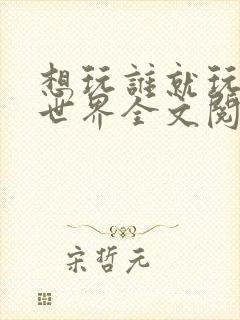 想玩誰就玩
世界全文閱
宋哲元